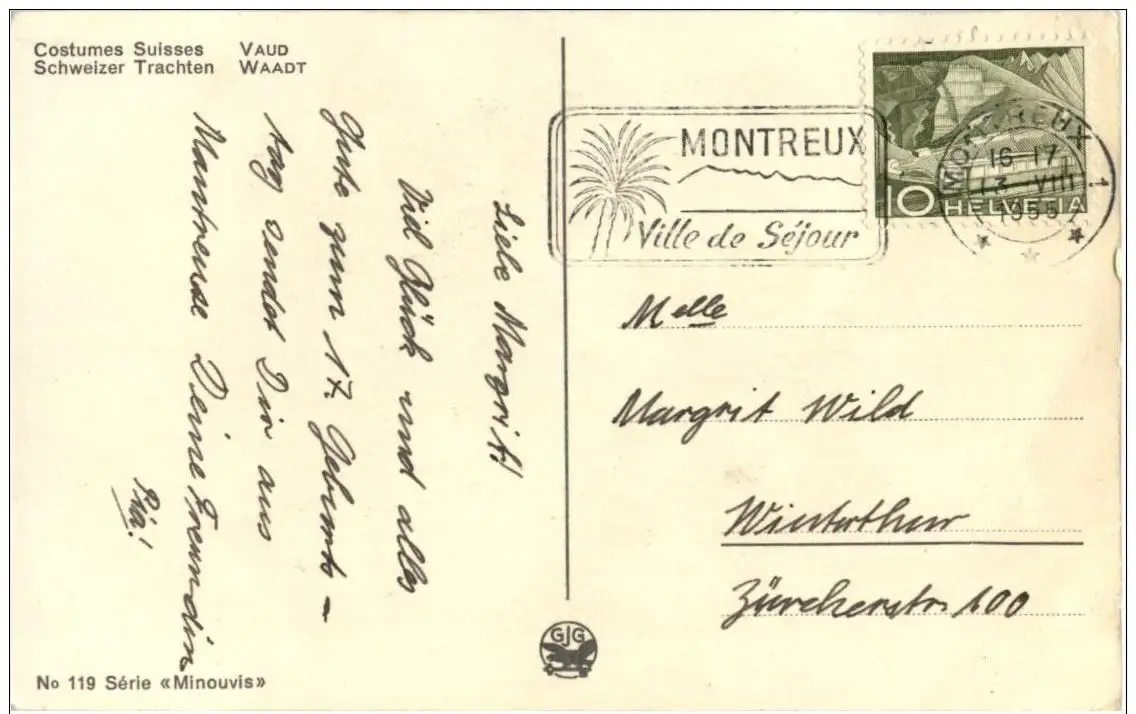 Costumes Suisses VAUD
Schweizer Trachten WAADT
Liebe Margrit!
Viel Glück und alles
Gute zum 17. Geburts-
tag sendet Dir aus
Mantreuse Deine Freundin
Pia!
No 119 Série «Minouvis»
GJG
MONTREUX
Ville de Séjour
10 HELVETIA
MONTREUX 1
16-17
13 VIII
1955
Melle
Margrit Wild
Winterthur
Zürcherstr. 100